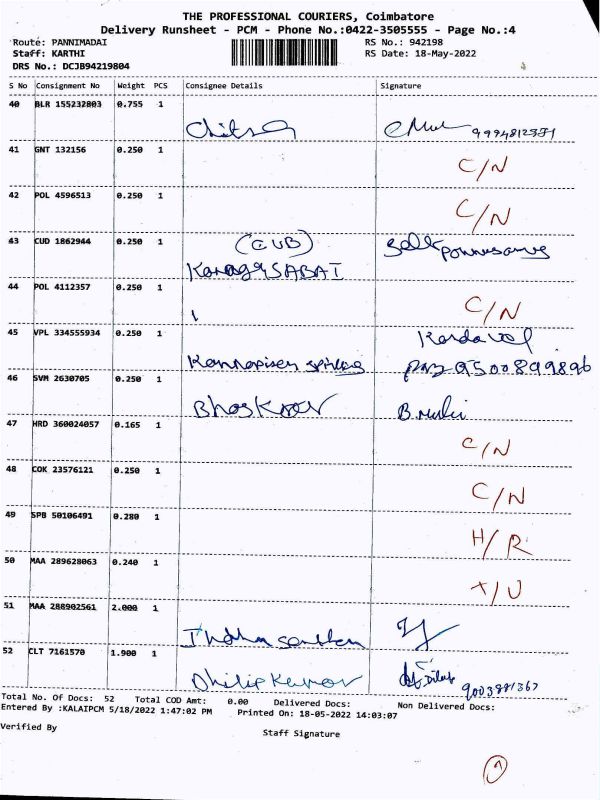 THE PROFESSIONAL COURIERS, Coimbatore
Delivery Runsheet - PCM - Phone No.:0422-3505555 - Page No.:4
Route: PANNIMADAI RS No.: 942198
Staff: KARTHI RS Date: 18-May-2022
DRS No.: DCJB94219804
S No Consignment No Weight PCS Consignee Details Signature
40 BLR 155232803 0.755 1
Chitra
41 GNT 132156 0.250 1 C/N
42 POL 4596513 0.250 1 C/N
43 CUD 1862944 0.250 1 (CUB)
KanagaSABAI
44 POL 4112357 0.250 1 C/N
45 VPL 334555934 0.250 1
9500899896
46 SVM 2630705 0.250 1 Bhaskar
47 HRD 360024057 0.165 1 C/N
48 COK 23576121 0.250 1 C/N
49 SPB 50106491 0.280 1 H/R
50 MAA 289628063 0.240 1
51 MAA 288902561 2.000 1
52 CLT 7161570 1.900 1
Dhilip Kumar
Total No. Of Docs: 52 Total COD Amt: 0.00 Delivered Docs: Non Delivered Docs:
Entered By :KALAIPCM 5/18/2022 1:47:02 PM Printed On: 18-05-2022 14:03:07
Verified By Staff Signature